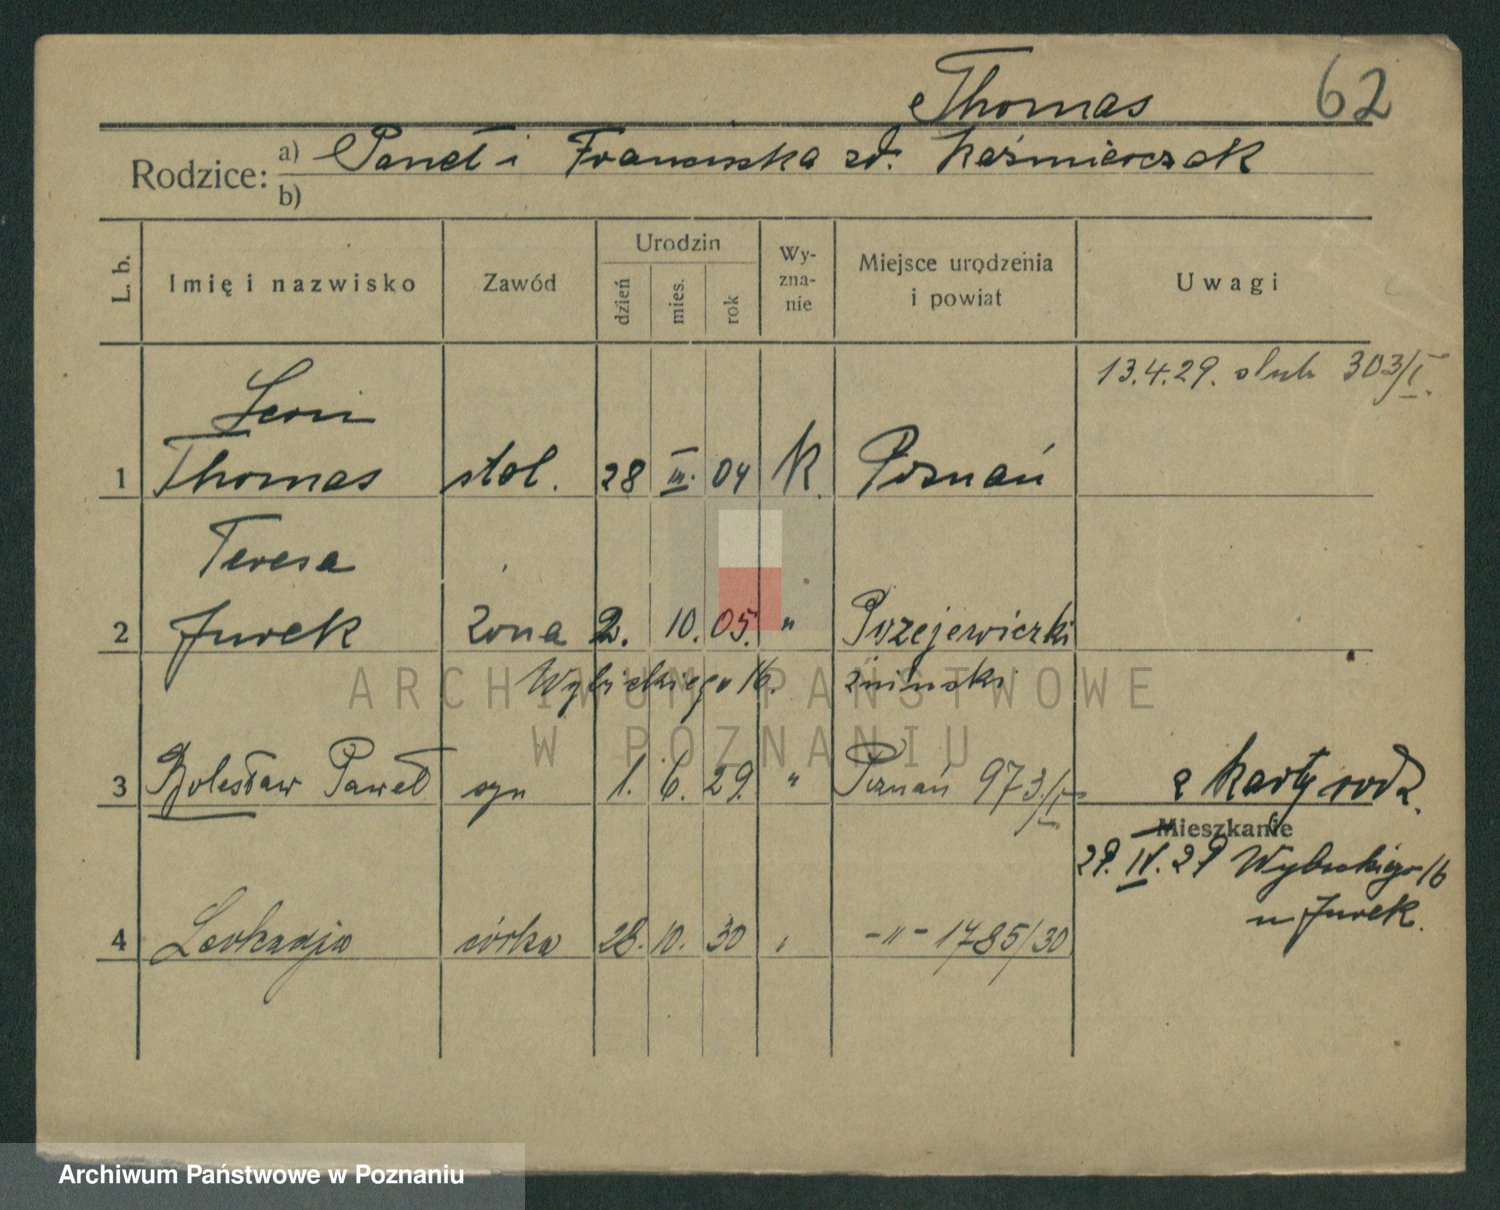 Thomas 62
Rodzice: a) Paweł i Franciszka zd. Kaźmierczak
b)
L. b. Imię i nazwisko Zawód Urodzin dzień mies. rok Wy-zna-nie Miejsce urodzenia i powiat Uwagi
13.4.29. ślub 303/I.
Leon
1 Thomas stol. 28 III. 04 K. Poznań
Teresa
2 Jurek żona 2. 10. 05. "
Wybickiego 16. żniński
3 Bolesław Paweł syn 1. 6. 29. " Poznań 973/I z karty rodz.
Mieszkanie
29. IV. 29 Wybickiego 16
u Jurek.
4 Leokadja córka 28. 10. 30 " -"- 1785/30
ARCHIWUM PAŃSTWOWE
W POZNANIU
Archiwum Państwowe w Poznaniu